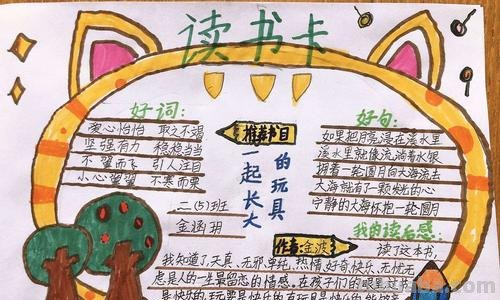 读书卡
好词:
提心怕怕 取之不竭
坚强有力 稳稳当当
不翼而飞 引人注目
小心翼翼 不寒而栗
二(5)班
金涵玥
推荐书目
一起长大
的玩具
作者:金波
好句:
如果把月亮浸在溪水里
溪水里就像流淌着水银
拥着一轮圆月向大海流去
大海就有了颗发光的心
宁静的大海怀抱一轮圆月
我的读后感:
读了这本书,
我知道了天真、无邪、单纯、热情、好奇、快乐、无忧无
虑是人的一生最留恋的情感,在孩子们的眼里读书
是快乐的,玩耍是快乐的